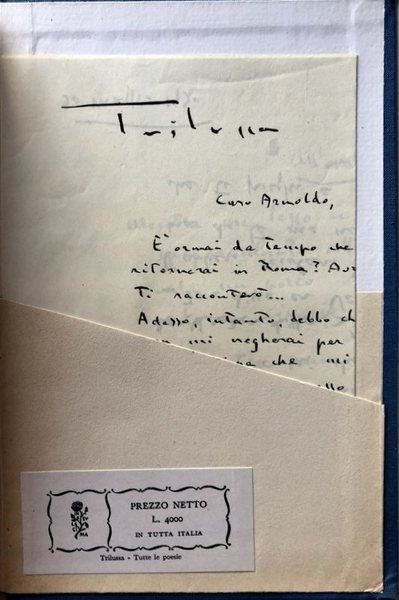 Trilussa
Caro Arnoldo,
È ormai da tempo che
ritornerai in Roma?
Ti racconterò...
Adesso, intanto, debbo
mi negherai per
che mi
PREZZO NETTO
L. 4000
IN TUTTA ITALIA
Trilussa - Tutte le poesie